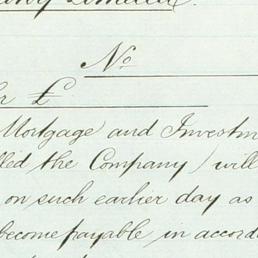 Limited.
No
£
Mortgage and Investm
lled the Company) will
on such earlier day as
become payable in accord